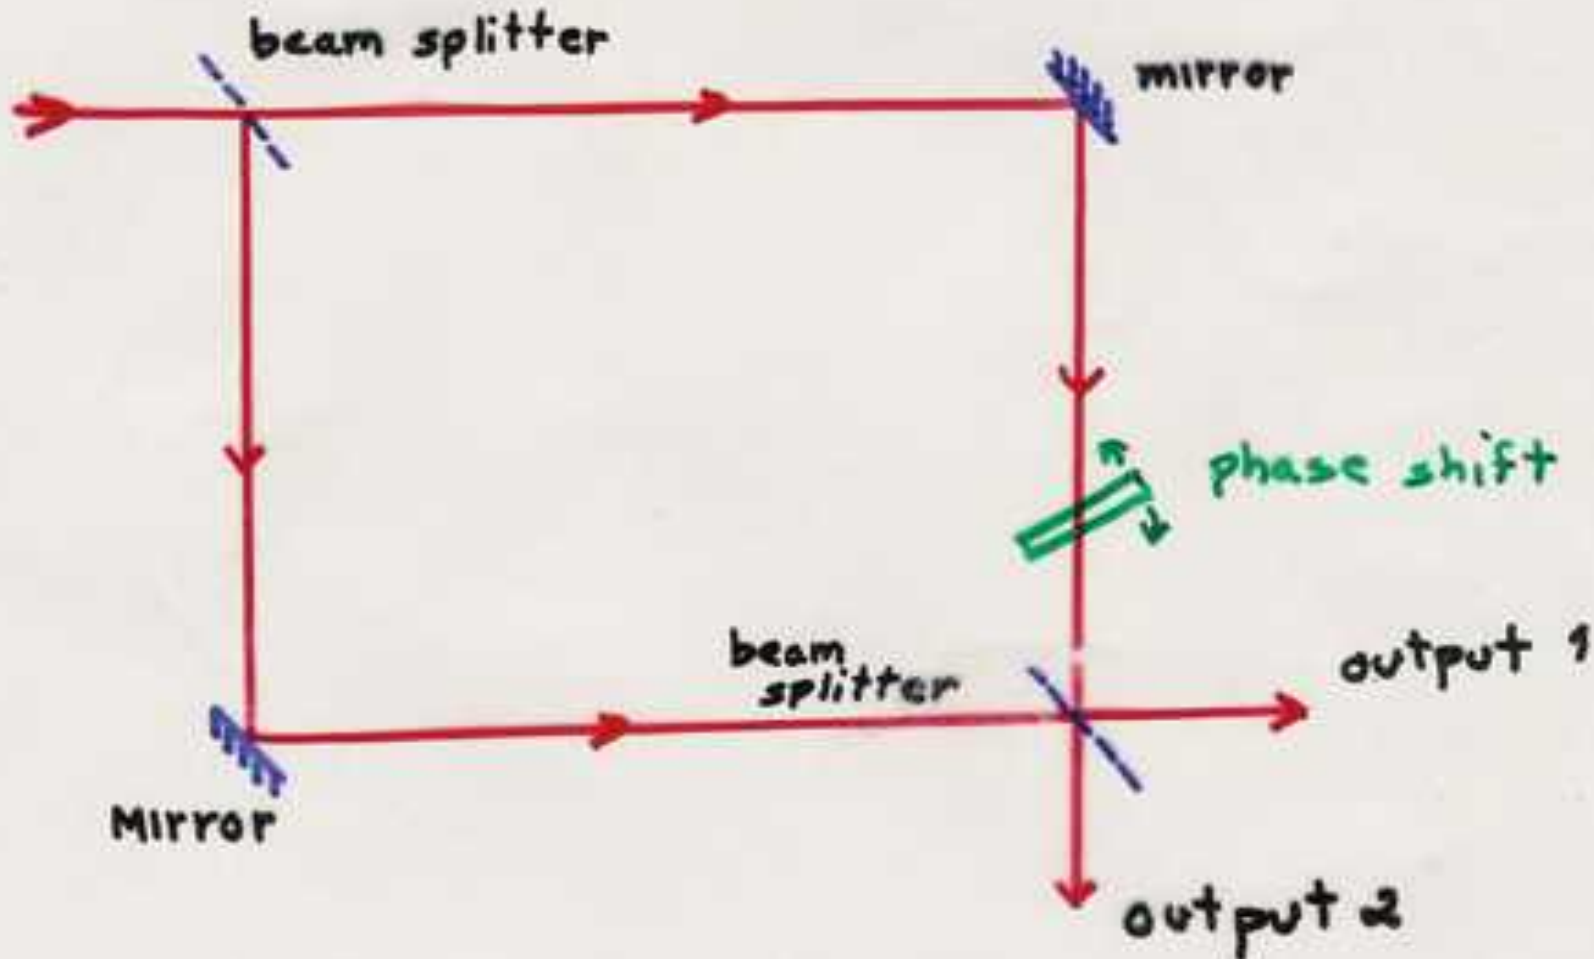 beam splitter
mirror
phase shift
beam
splitter
output 1
Mirror
output 2